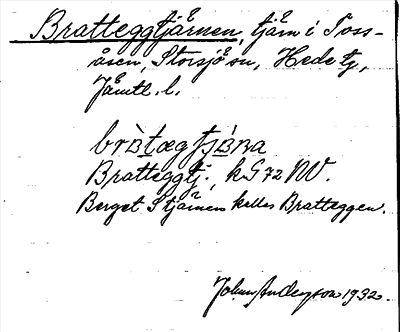 Bratteggtjärnen, tjärn i Toss-
åsen, Storsjö sn, Hede tg,
Jämtl. l.
brɒ̀tægtjɒ̀ɴa
Bratteggtj., k G 72 NV.
Berget S tjärnen kallas Bratteggen.
Johan Anderson 1932.